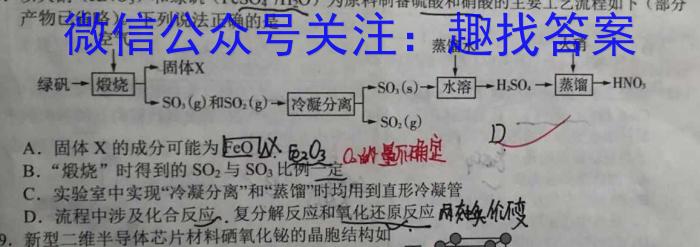 为原料制备硫酸和硝酸的主要工艺流程如下（部分
产物已
下列说法正确的是
微信公众号关注：趣找答案
绿矾→煅烧
固体X
SO₃(g)和SO₂(g)→冷凝分离
SO₃(s)→水溶→H₂SO₄→蒸馏→HNO₃
SO₂(g)
D
A．固体 X 的成分可能为 FeO Fe₂O₃ O₂的量不确定
B．“煅烧”时得到的 SO₂与 SO₃比例一定
C．实验室中实现“冷凝分离”和“蒸馏”时均用到直形冷凝管
D．流程中涉及化合反应、复分解反应和氧化还原反应
9．新型二维半导体芯片材料硒氧化铋的晶胞结构如